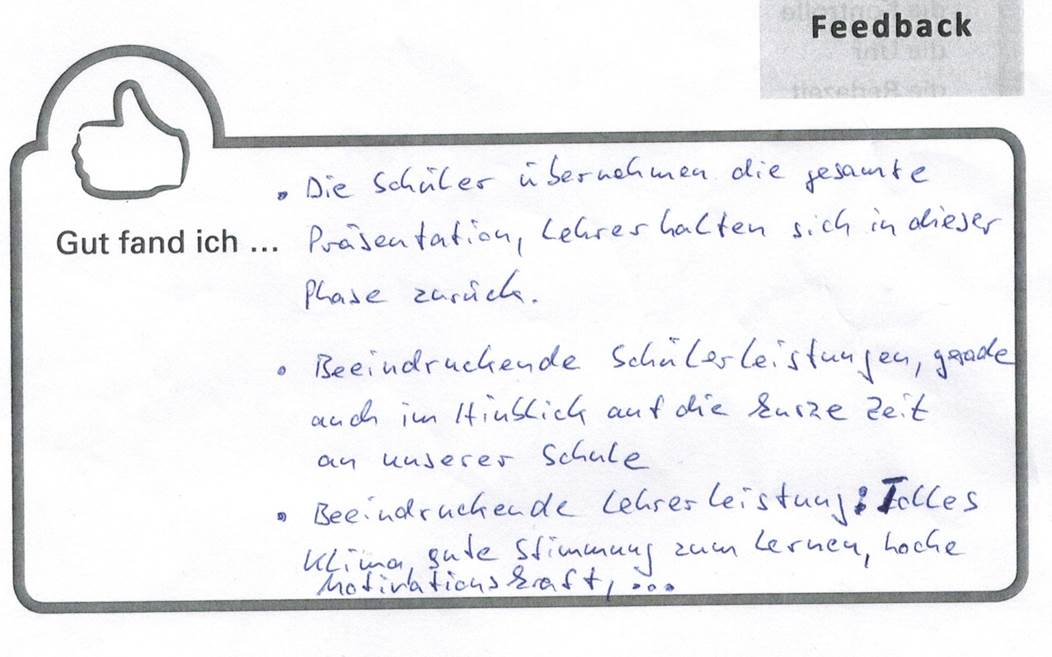 Feedback
die Kontrolle
die Uhr
die Redezeit
• Die Schüler übernehmen die gesamte
Gut fand ich ... Präsentation, Lehrer halten sich in dieser
Phase zurück.
• Beeindruckende Schülerleistungen, gerade
auch im Hinblick auf die kurze Zeit
an unserer Schule
• Beeindruckende Lehrerleistung: Tolles
Klima, gute Stimmung zum Lernen, hohe
Motivationskraft, ...